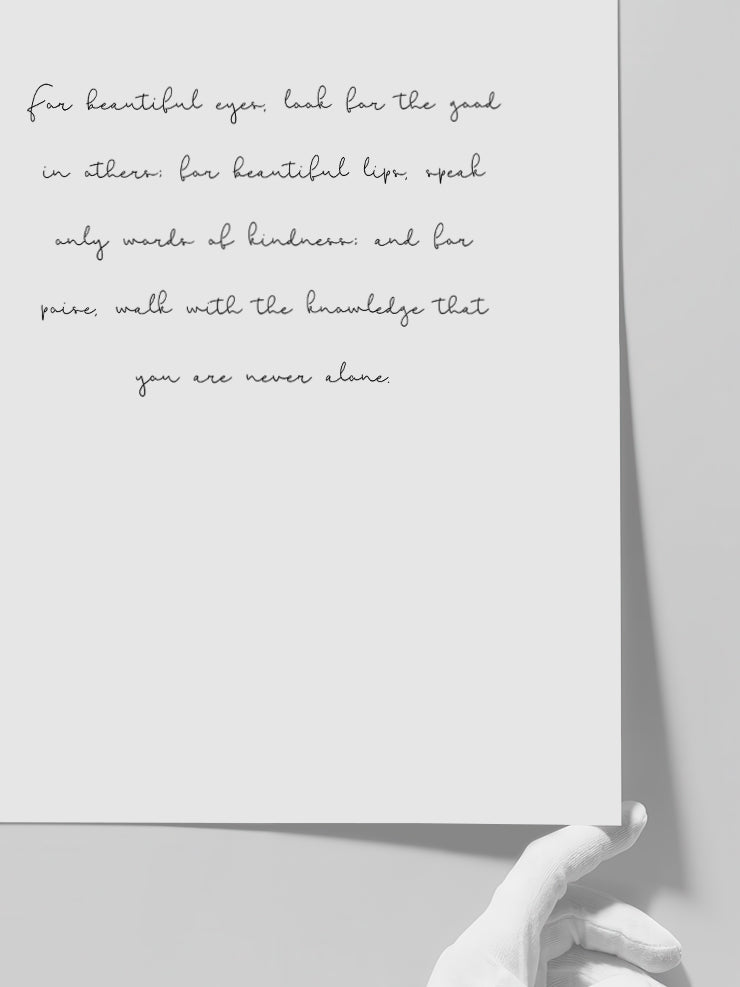 For beautiful eyes, look for the good
in others; for beautiful lips, speak
only words of kindness; and for
poise, walk with the knowledge that
you are never alone.